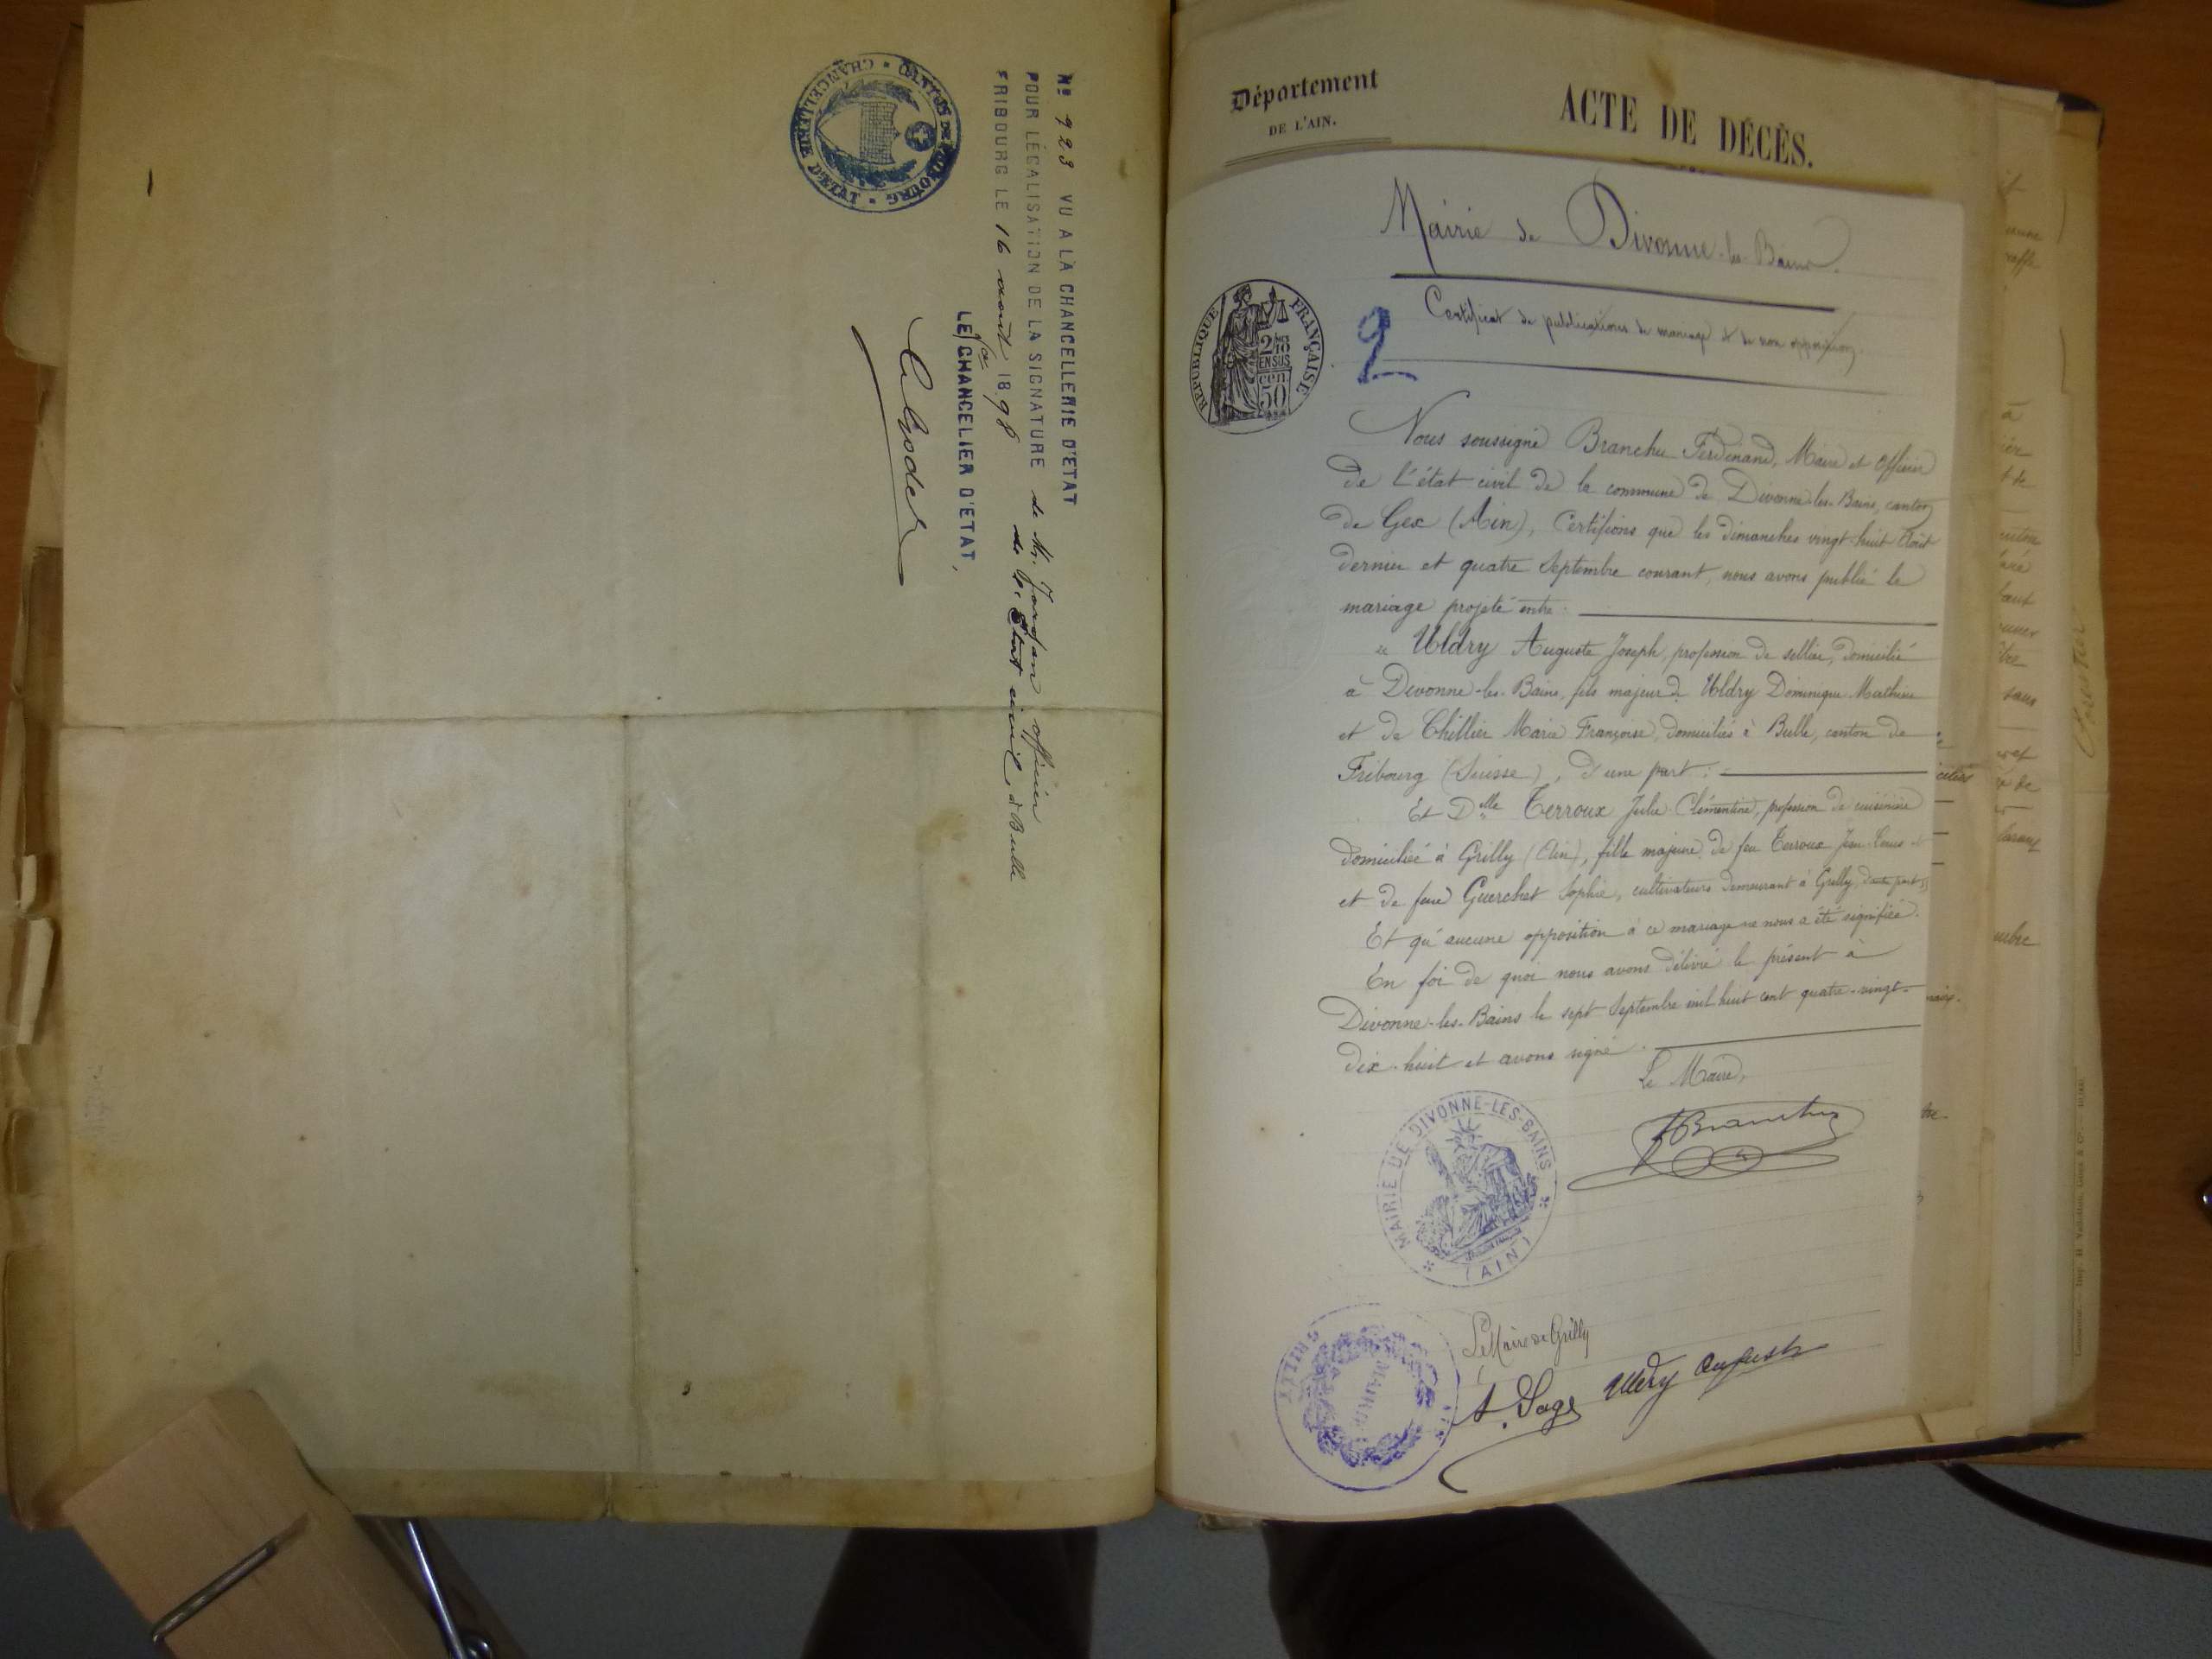 Nº 923 VU A LA CHANCELLERIE D'ETAT
POUR LÉGALISATION DE LA SIGNATURE de M. officier
de l'Etat civil, à Bulle
FRIBOURG LE 16 août 1898
LE CHANCELIER D'ETAT,
CANTON DE FRIBOURG * CHANCELLERIE D'ETAT *
Département
DE L'AIN.
ACTE DE DÉCÈS.
Mairie de Divonne-les-Bains.
Certificat de publications de mariage & de non opposition.
REPUBLIQUE FRANÇAISE
2/10
EN SUS
50 cen
2
Nous soussigné Branchu Ferdinand, Maire et Officier
de l'état civil de la commune de Divonne-les-Bains, canton
de Gex (Ain), Certifions que les dimanches vingt-huit Août
dernier et quatre Septembre courant, nous avons publié le
mariage projeté entre :
Uldry Auguste Joseph, profession de sellier, domicilié
à Divonne-les-Bains, fils majeur de Uldry Dominique Mathieu
et de Chillier Marie Françoise, domiciliés à Bulle, canton de
Fribourg (Suisse), d'une part :
Et Dlle Terroux Julie Clémentine, profession de cuisinière
domiciliée à Grilly (Ain), fille majeure de feu Terroux Jean Louis
et de feue Guerchet Sophie, cultivateurs demeurant à Grilly, d'autre part,
Et qu'aucune opposition à ce mariage ne nous a été signifiée.
En foi de quoi nous avons délivré le présent à
Divonne-les-Bains le sept Septembre mil huit cent quatre-vingt-
dix-huit et avons signé.
Le Maire,
FBranchu
MAIRIE DE DIVONNE-LES-BAINS
(AIN)
Le Maire de Grilly
A. Sage Uldry Auguste
MAIRIE
GRILLY
AIN